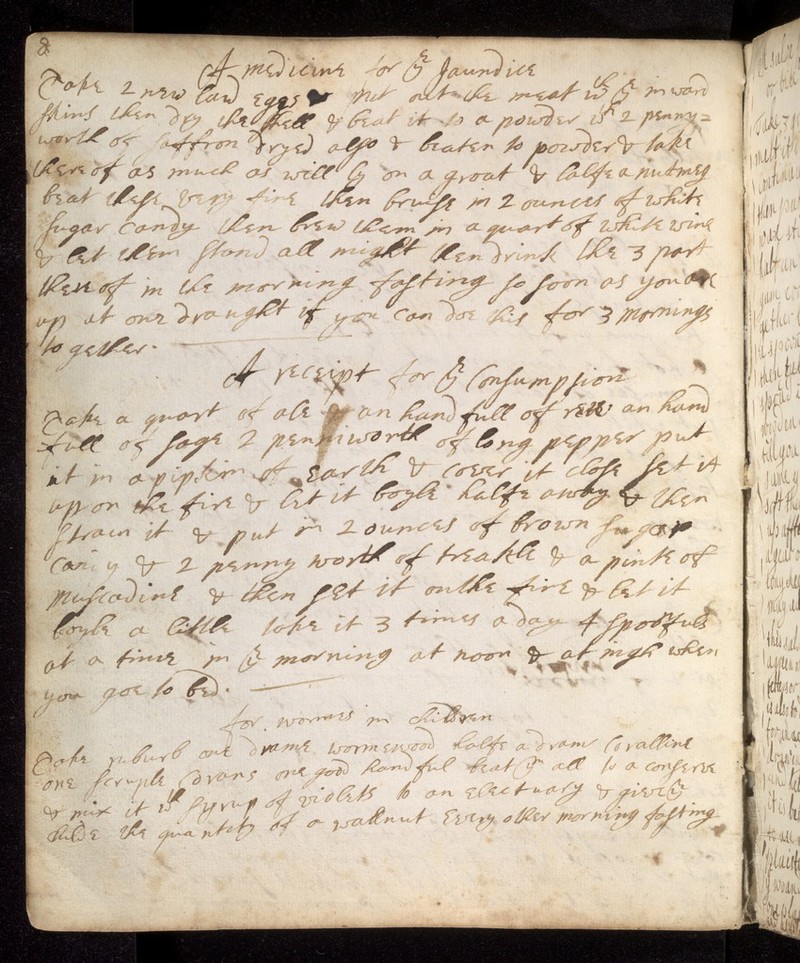 8
A medicine for yᵉ Jaundice
Take 2 new laid eggs put out the meat wᵗʰ yᵉ inward
skins then dry the shell & beat it to a powder wᵗʰ 2 penny=
worth of saffron dryed also & beaten to powder & take
thereof as much as will ly on a groat & halfe a nutmeg
beat these very fine then bruise in 2 ounces of white
sugar candy then brew them in a quart of white wine
& let them stand all night then drink the 3 part
thereof in the morning fasting so soon as you are
up at one draught if you can doe this for 3 mornings
together.
A receipt for yᵉ Consumpsion
Take a quart of ale an handfull of rue an hand
full of sage 2 penniworth of long pepper put
it in a pipkin of earth & cover it close set it
upon the fire & let it boyle halfe away & then
strain it & put in 2 ounces of brown sugar
candy & 2 penny worth of treakle & a pinte of
muscadine & then set it on the fire & let it
boyle a little take it 3 times a day 4 spoonfuls
at a time in yᵉ morning at noon & at nigh when
you goe to bed.
for wormes in children
Take ruburb one drame wormewood halfe a dram Coralline
one scruple one good handful beat yᵐ all to a conserve
& mix it wᵗʰ syrup of violets to an electuary & give yᵉ
childe the quantity of a wallnut every other morning fasting